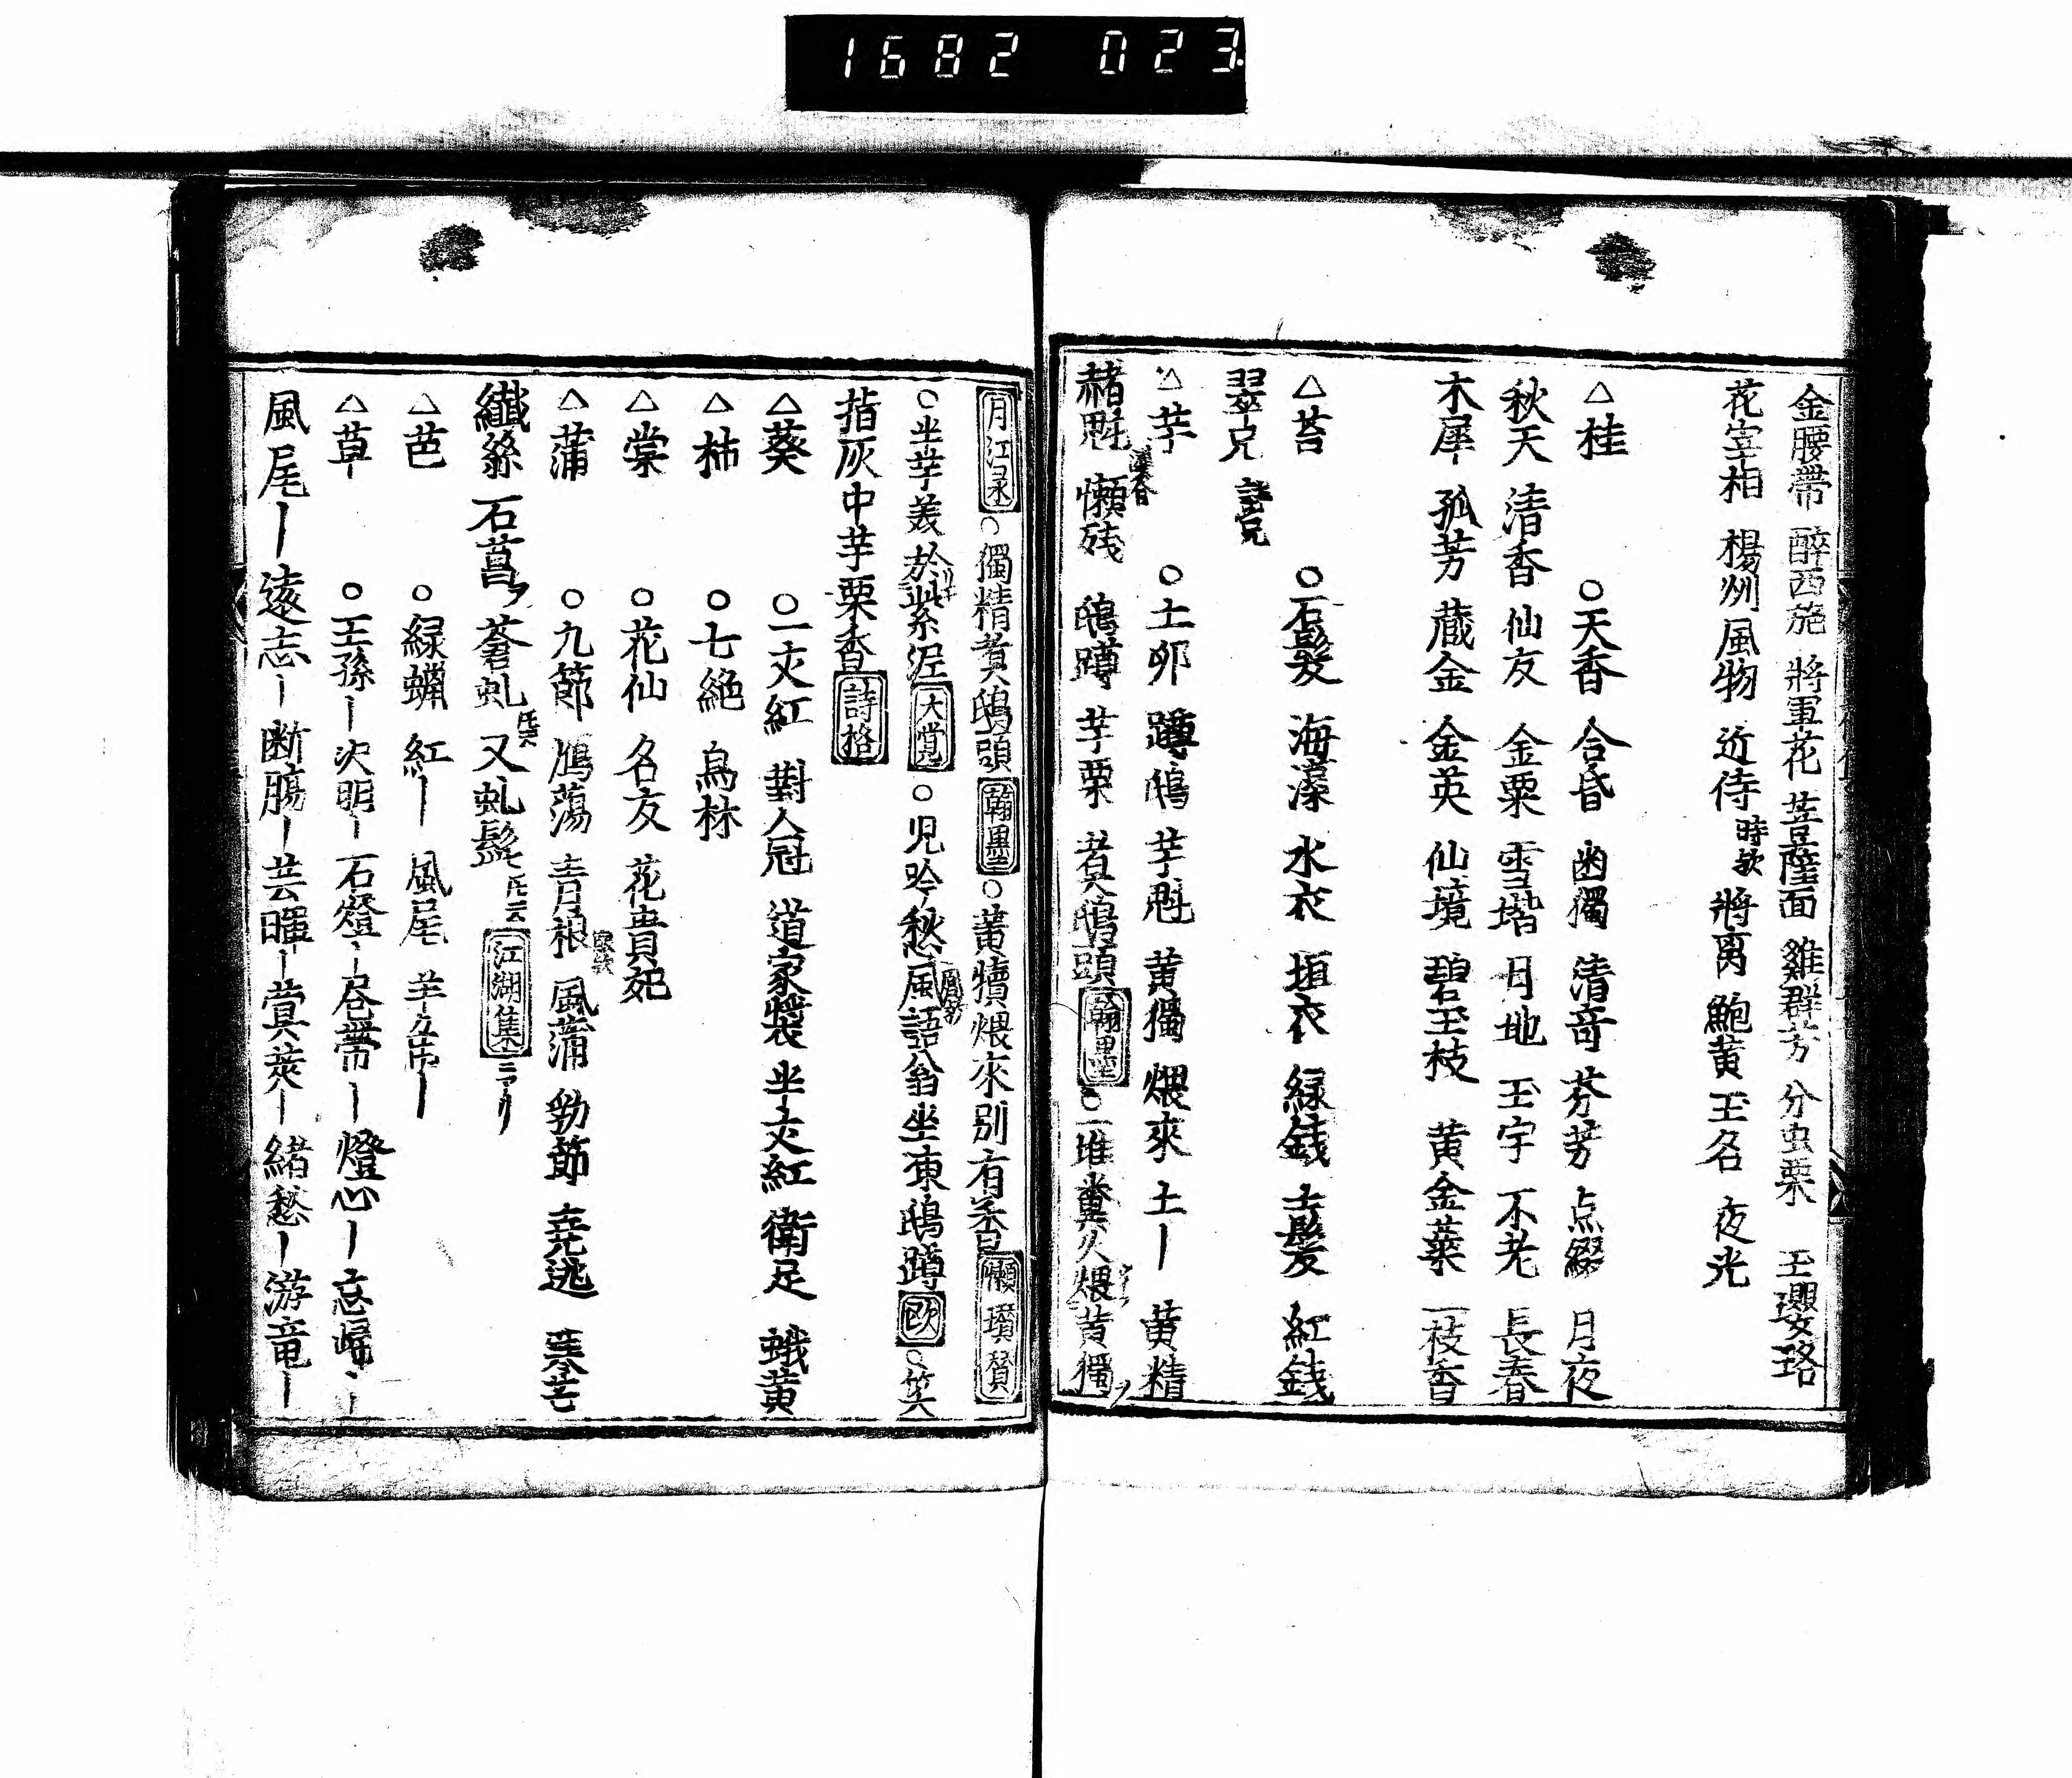 1682 023
金腰帶 醉西施 將軍花 菩薩面 雞群芳 分虫栗 玉瓔珞
花宰相 楊州風物 近侍 時歟 將离 鮑黄 王名 夜光
△桂 ○天香 合昏 幽獨 清奇 芬芳 点綴 月夜
秋天 清香 仙友 金粟 雪堦 月地 玉宇 不老 長春
木犀 孤芳 蔵金 金英 仙境 碧玉枝 黄金葉 一枝香
△苔 ○石髮 海藻 水衣 垣衣 緑銭 土髮 紅銭
翠
△芋 ○土卵 蹲鴟 芋魁 黄獨 煨來 土｜ 黄精
赭魁 懶残 鴟蹲 芋栗 煮鴟頭 翰墨 ○一堆糞火煨黄獨
月江录 ○獨精煮鴟頭 翰墨 ○黄犢煨來別有香 懶瓚賛
○坐芋羙於紫泥 大覚 ○児吟愁風語翁坐東鴟蹲 欧 ○笑
指灰中芋栗香 詩格
△葵 ○一丈紅 對人冠 道家裝 半丈紅 衛足 蛾黄
△柿 ○七絶 烏林
△棠 ○花仙 名友 花貴妃
△蒲 ○九節 鴈蕩 青根 風蒲 勁節 堯逃
纎絲 石菖 蒼虬 又虬髯 江湖集
△芭 ○緑蝋 紅｜ 風尾 羊
△草｜ ○王孫｜ 決明｜ 石燈｜ 帶｜ 燈心｜ 忘
風尾｜ 遠志｜ 断膓｜ 芸暉｜ 蓂莢｜ 緒愁｜ 游竜｜